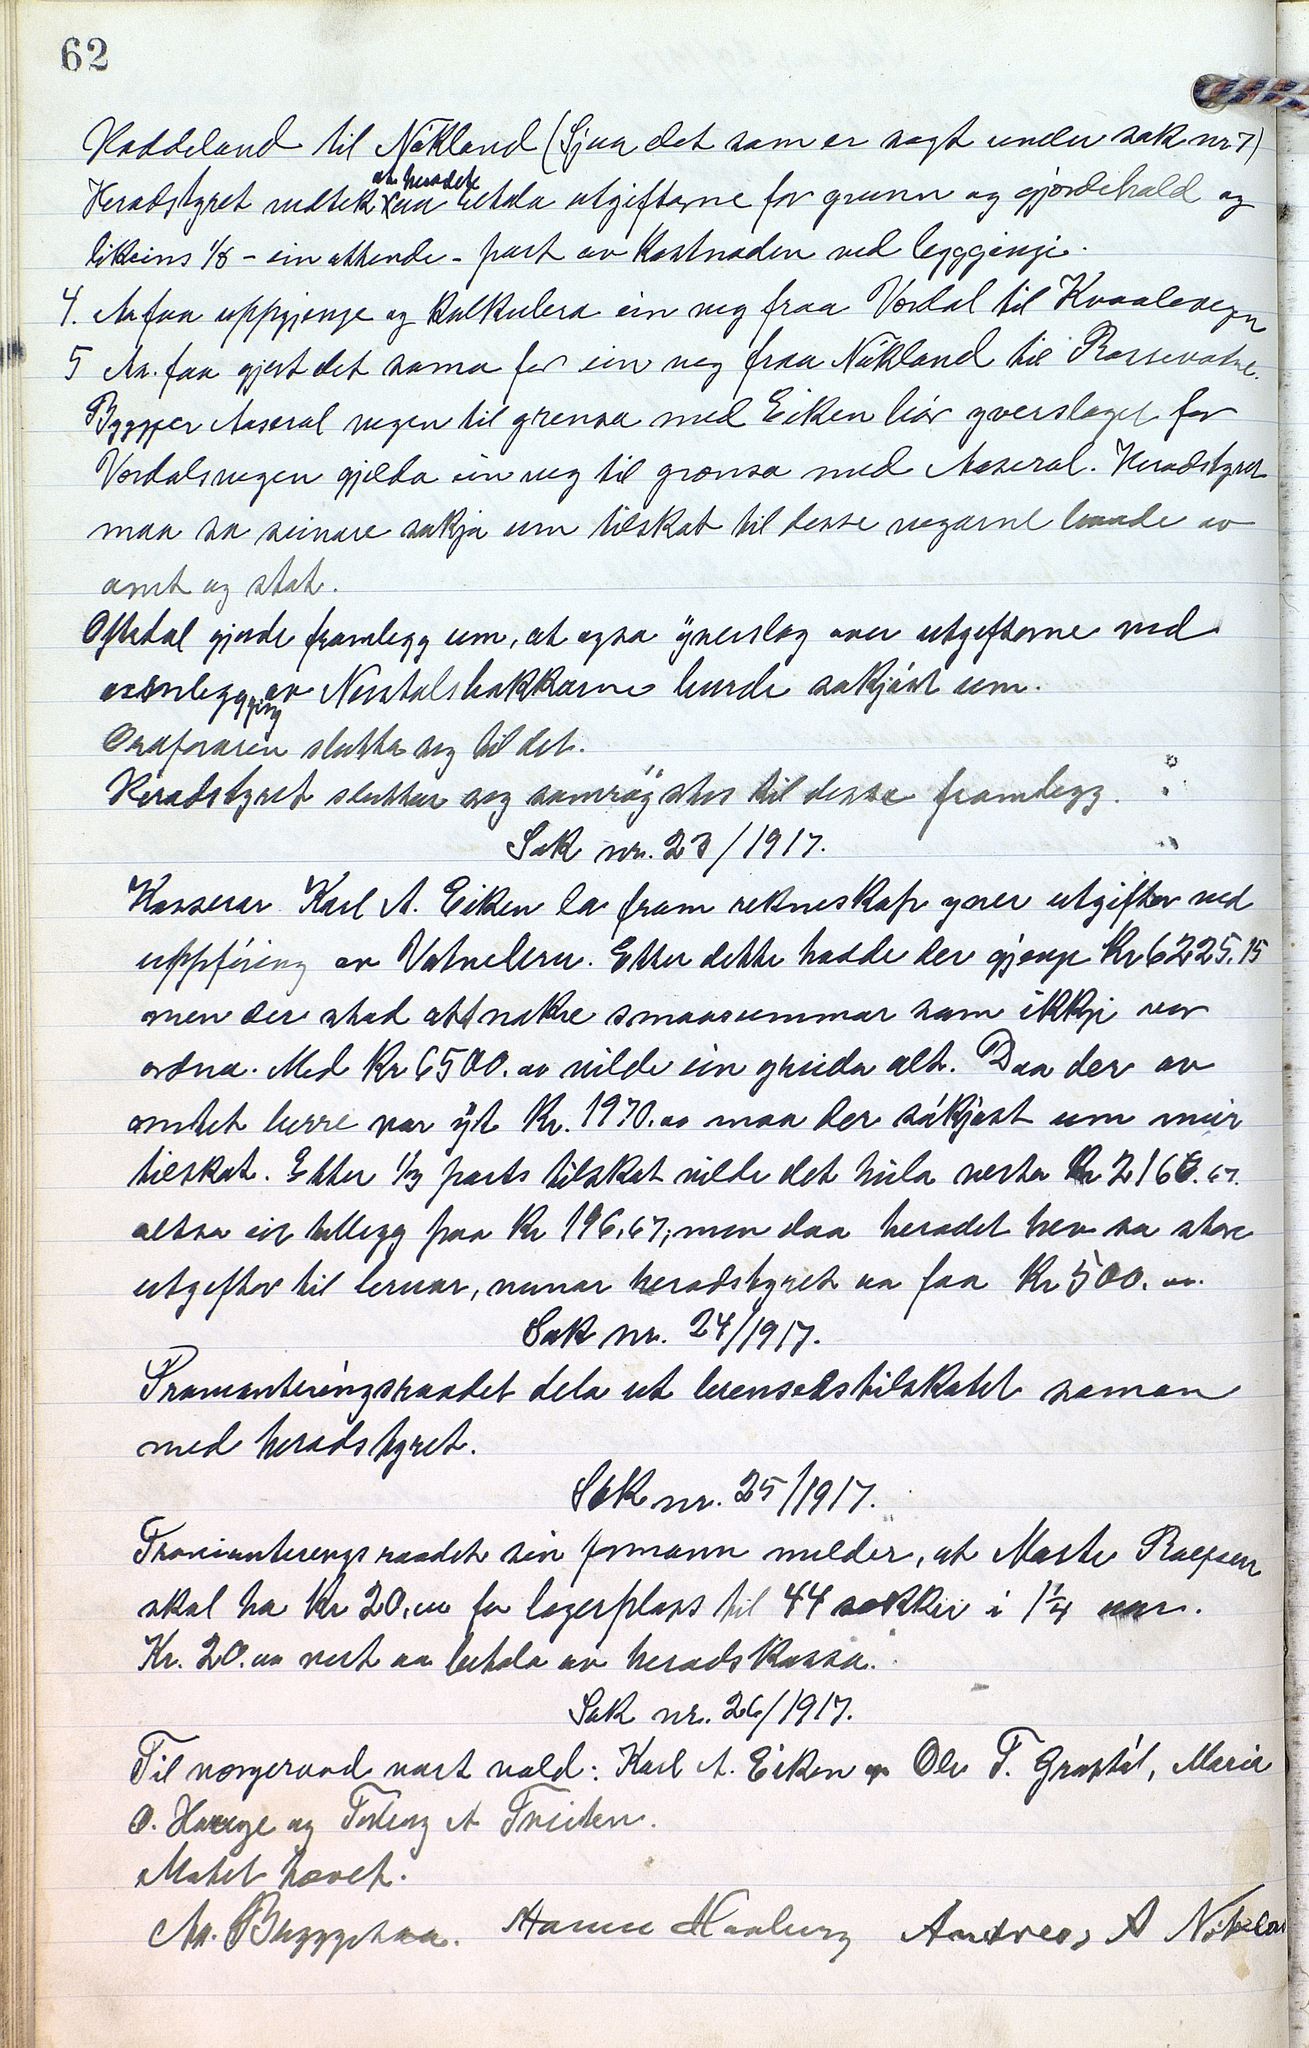 62
Haddeland til Nökland (Sjaa det som er sagt under sak nr 7)
at heradet
Heradstyret vedtek x aa betala utgifterne for grunn og gjordehald og
likeins 1/8 - ein attende - part av kostnaden ved leggginje.
4. Aa faa uppgjenge og kalkulera ein veg fraa Vordal til Kvaalevegen
5 Aa faa gjort det sama for ein veg fraa Nökland til Rossevatne.
Byggjer Aaseral vegen til grensa med Eiken bör yverslaget for
Vordalsvegen gjelda ein veg til grensa med Aaseral. Heradstyret
maa sa seinare søkja um tilskot til desse vegarne baade av
amt og stat.
Oftedal gjorde framlegg um, at ogsa yverslag over utgifterne ved
omleggging av Nesstalsbakkarne burde søkjast um.
Ordføraren slutta seg til det.
Heradstyret sluttar seg samröystes til desse framlegg.
Sak nr. 23/1917.
Kasserar Karl A. Eiken la fram rekneskap yver utgifter ved
uppföring av Vatnebru. Etter dette hadde der gjenge Kr 6225.15
men der stod att nokre smaasummar som ikkje var
ordna. Med Kr 6500.oo vilde ein greida alt. Daa der av
amtet berre var yt Kr. 1970.oo maa der sökjast um meir
tilskot. Etter 1/3 parts tilskot vilde det heila verta Kr 2166.67.
altsa eit tillegg paa Kr 196,67; men daa heradet hev sa store
utgifter til bruar, vonar heradstyret aa faa Kr 500.oo.
Sak nr. 24/1917.
Provianteringsraadet dela ut brenselstilskotet saman
med heradstyret.
Sak nr. 25/1917.
Provianteringsraadet sin formann melder, at Marte
skal ha Kr 20.oo for lagerplass til 44 sekker i 1¼ aar.
Kr. 20.oo vert aa betala av heradskassa.
Sak nr. 26/1917.
Til vergeraad vart vald: Karl A. Eiken og Ole T. Grostöl, Marie
O. Hauge og Torborg A Tveiten.
Mötet hævet.
Aa. Byggstøa. Hans Haaberg Andreas A Nökland